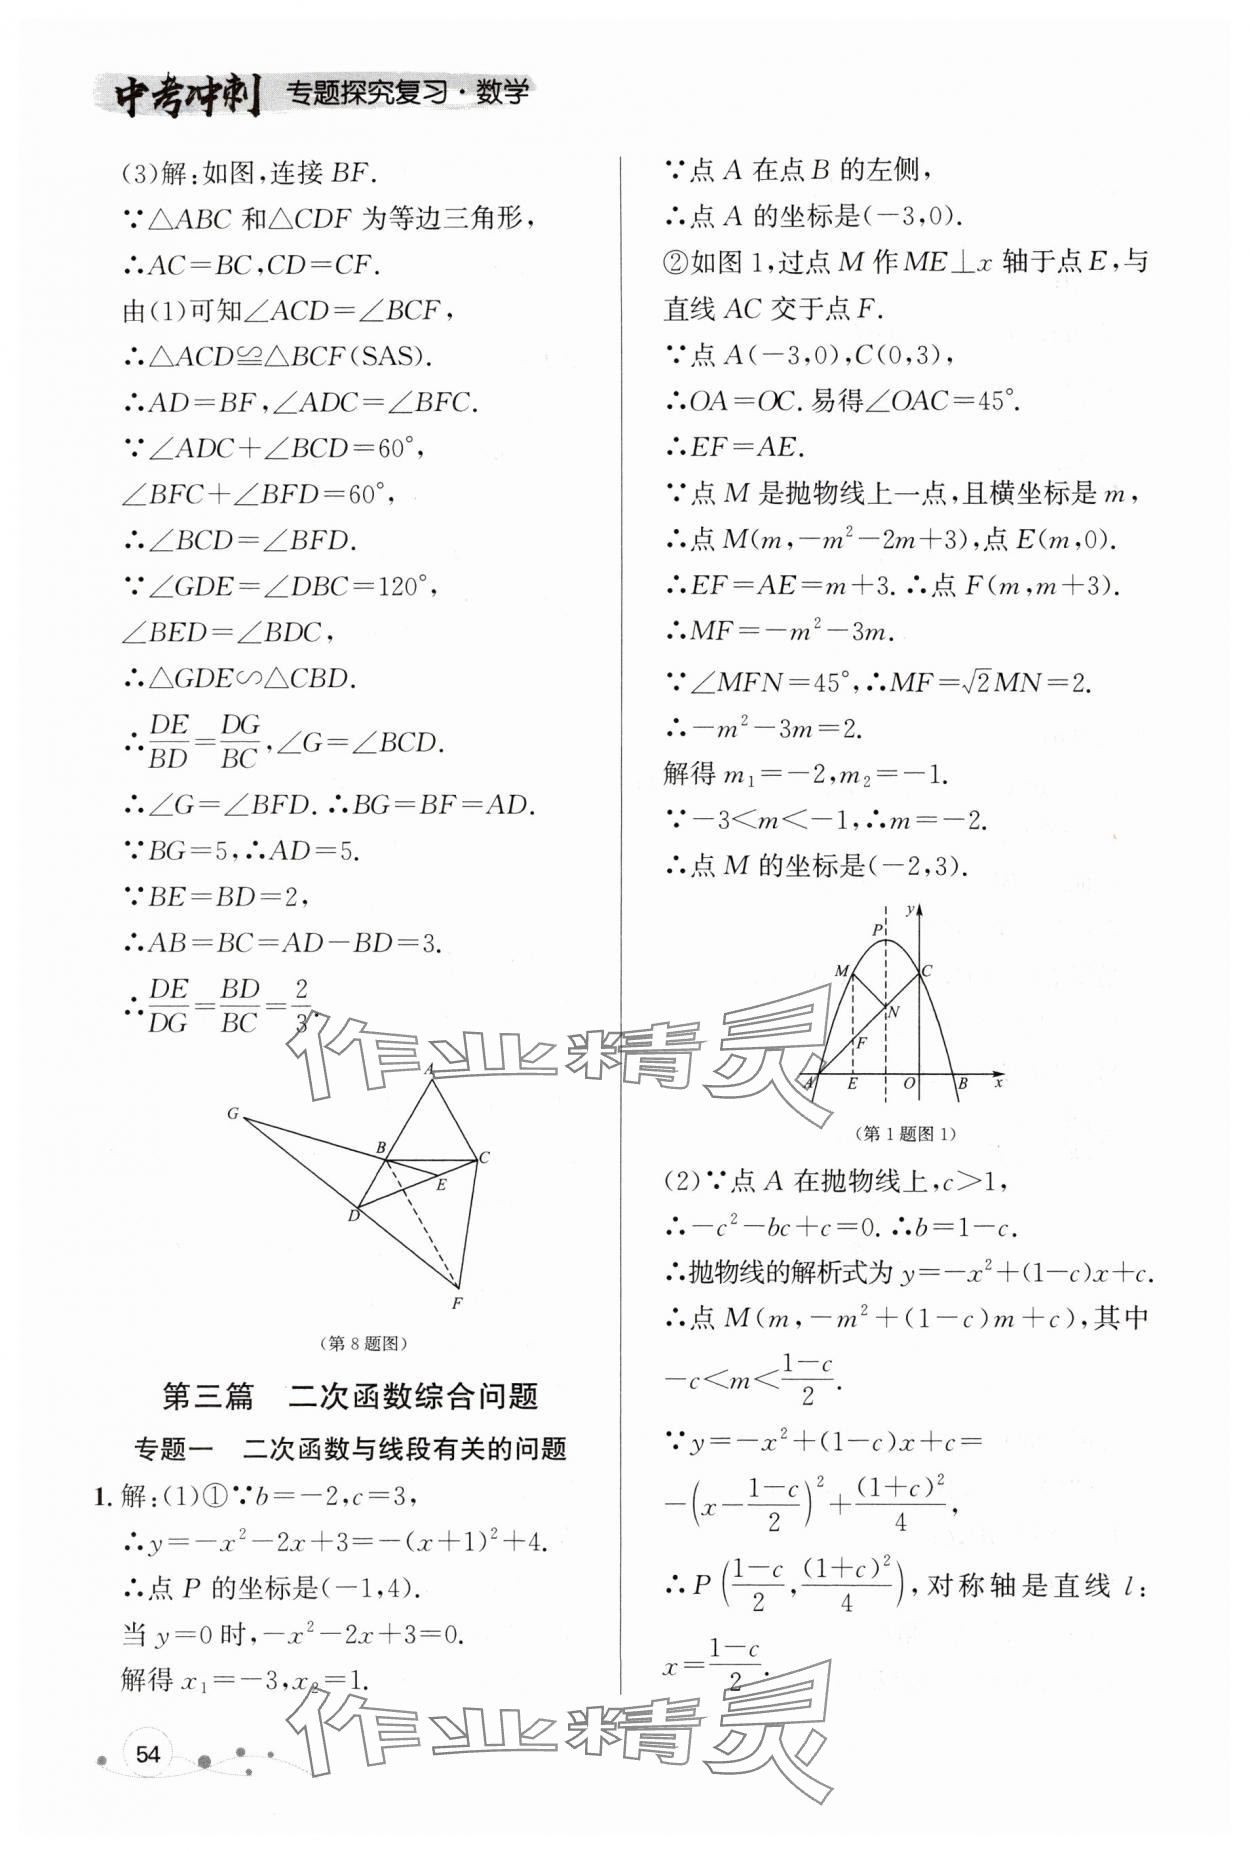 中考冲刺 专题探究复习·数学
(3)解:如图,连接BF.
∵△ABC 和△CDF 为等边三角形,
∴AC=BC,CD=CF.
由(1)可知∠ACD=∠BCF,
∴△ACD≌△BCF(SAS).
∴AD=BF,∠ADC=∠BFC.
∵∠ADC+∠BCD=60°,
∠BFC+∠BFD=60°,
∴∠BCD=∠BFD.
∵∠GDE=∠DBC=120°,
∠BED=∠BDC,
∴△GDE∽△CBD.
∴DE/BD=DG/BC,∠G=∠BCD.
∴∠G=∠BFD.∴BG=BF=AD.
∵BG=5,∴AD=5.
∵BE=BD=2,
∴AB=BC=AD−BD=3.
∴DE/DG=BD/BC=2/3.
A
G
B
C
E
D
F
(第8题图)
第三篇 二次函数综合问题
专题一 二次函数与线段有关的问题
1.解:(1)①∵b=−2,c=3,
∴y=−x²−2x+3=−(x+1)²+4.
∴点 P 的坐标是(−1,4).
当 y=0时,−x²−2x+3=0.
解得 x₁=−3,x₂=1.
∵点 A 在点B 的左侧,
∴点 A 的坐标是(−3,0).
②如图1,过点 M 作ME⊥x 轴于点E,与
直线 AC 交于点F.
∵点 A(−3,0),C(0,3),
∴OA=OC.易得∠OAC=45°.
∴EF=AE.
∵点 M 是抛物线上一点,且横坐标是 m,
∴点 M(m,−m²−2m+3),点 E(m,0).
∴EF=AE=m+3.∴点 F(m,m+3).
∴MF=−m²−3m.
∵∠MFN=45°,∴MF=√2MN=2.
∴−m²−3m=2.
解得 m₁=−2,m₂=−1.
∵−3<m<−1,∴m=−2.
∴点 M 的坐标是(−2,3).
y
P
M
C
N
F
A
E
O
B
x
(第1题图1)
(2)∵点 A 在抛物线上,c>1,
∴−c²−bc+c=0.∴b=1−c.
∴抛物线的解析式为 y=−x²+(1−c)x+c.
∴点 M(m,−m²+(1−c)m+c),其中
−c<m<(1−c)/2.
∵y=−x²+(1−c)x+c=
−(x−(1−c)/2)²+(1+c)²/4,
∴P((1−c)/2,(1+c)²/4),对称轴是直线 l:
x=(1−c)/2.
作业精灵
作业精灵
54